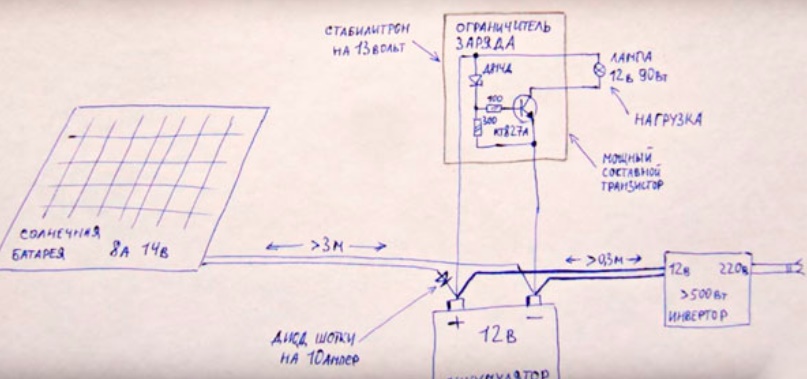 СТАБИЛИТРОН
НА 13 ВОЛЬТ
ОГРАНИЧИТЕЛЬ
ЗАРЯДА
Д814Д
400
300
КТ827А
ЛАМПА
12В 90Вт
НАГРУЗКА
МОЩНЫЙ
СОСТАВНОЙ
ТРАНЗИСТОР
СОЛНЕЧНАЯ
БАТАРЕЯ 8А 14В
>3м
>0,3м
12В 220В
>500Вт
ИНВЕРТОР
ДИОД ШОТКИ
НА 10 АМПЕР
+ −
12В